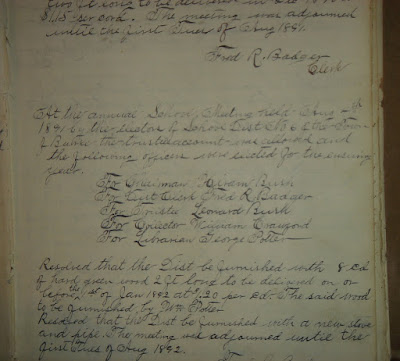 $1.15 per cord. The meeting was adjourned
until the first Tues of Aug 1891.
Fred R. Badger
Clerk
At the annual School Meeting held Aug
1891 by the elector of School Dist No 6 of the Town
of the trustees account was allowed and
the following officers were elected for the ensuing
year.
For Chairman Hiram Bush
For Dist Clerk Fred R. Badger
For Trustee Leonard Bush
For Collector William Crawford
For Librarian George Potter
Resolved that the Dist be furnished with 8 Cd
of hard green wood 2 ft long to be delivered on or
before 1st of Jan 1892 at $1.20 per Cd. The said wood
to be furnished by Potter
Resolved that the Dist be furnished with a new stove
and pipe. The meeting was adjourned until the
first Tues of Aug 1892.